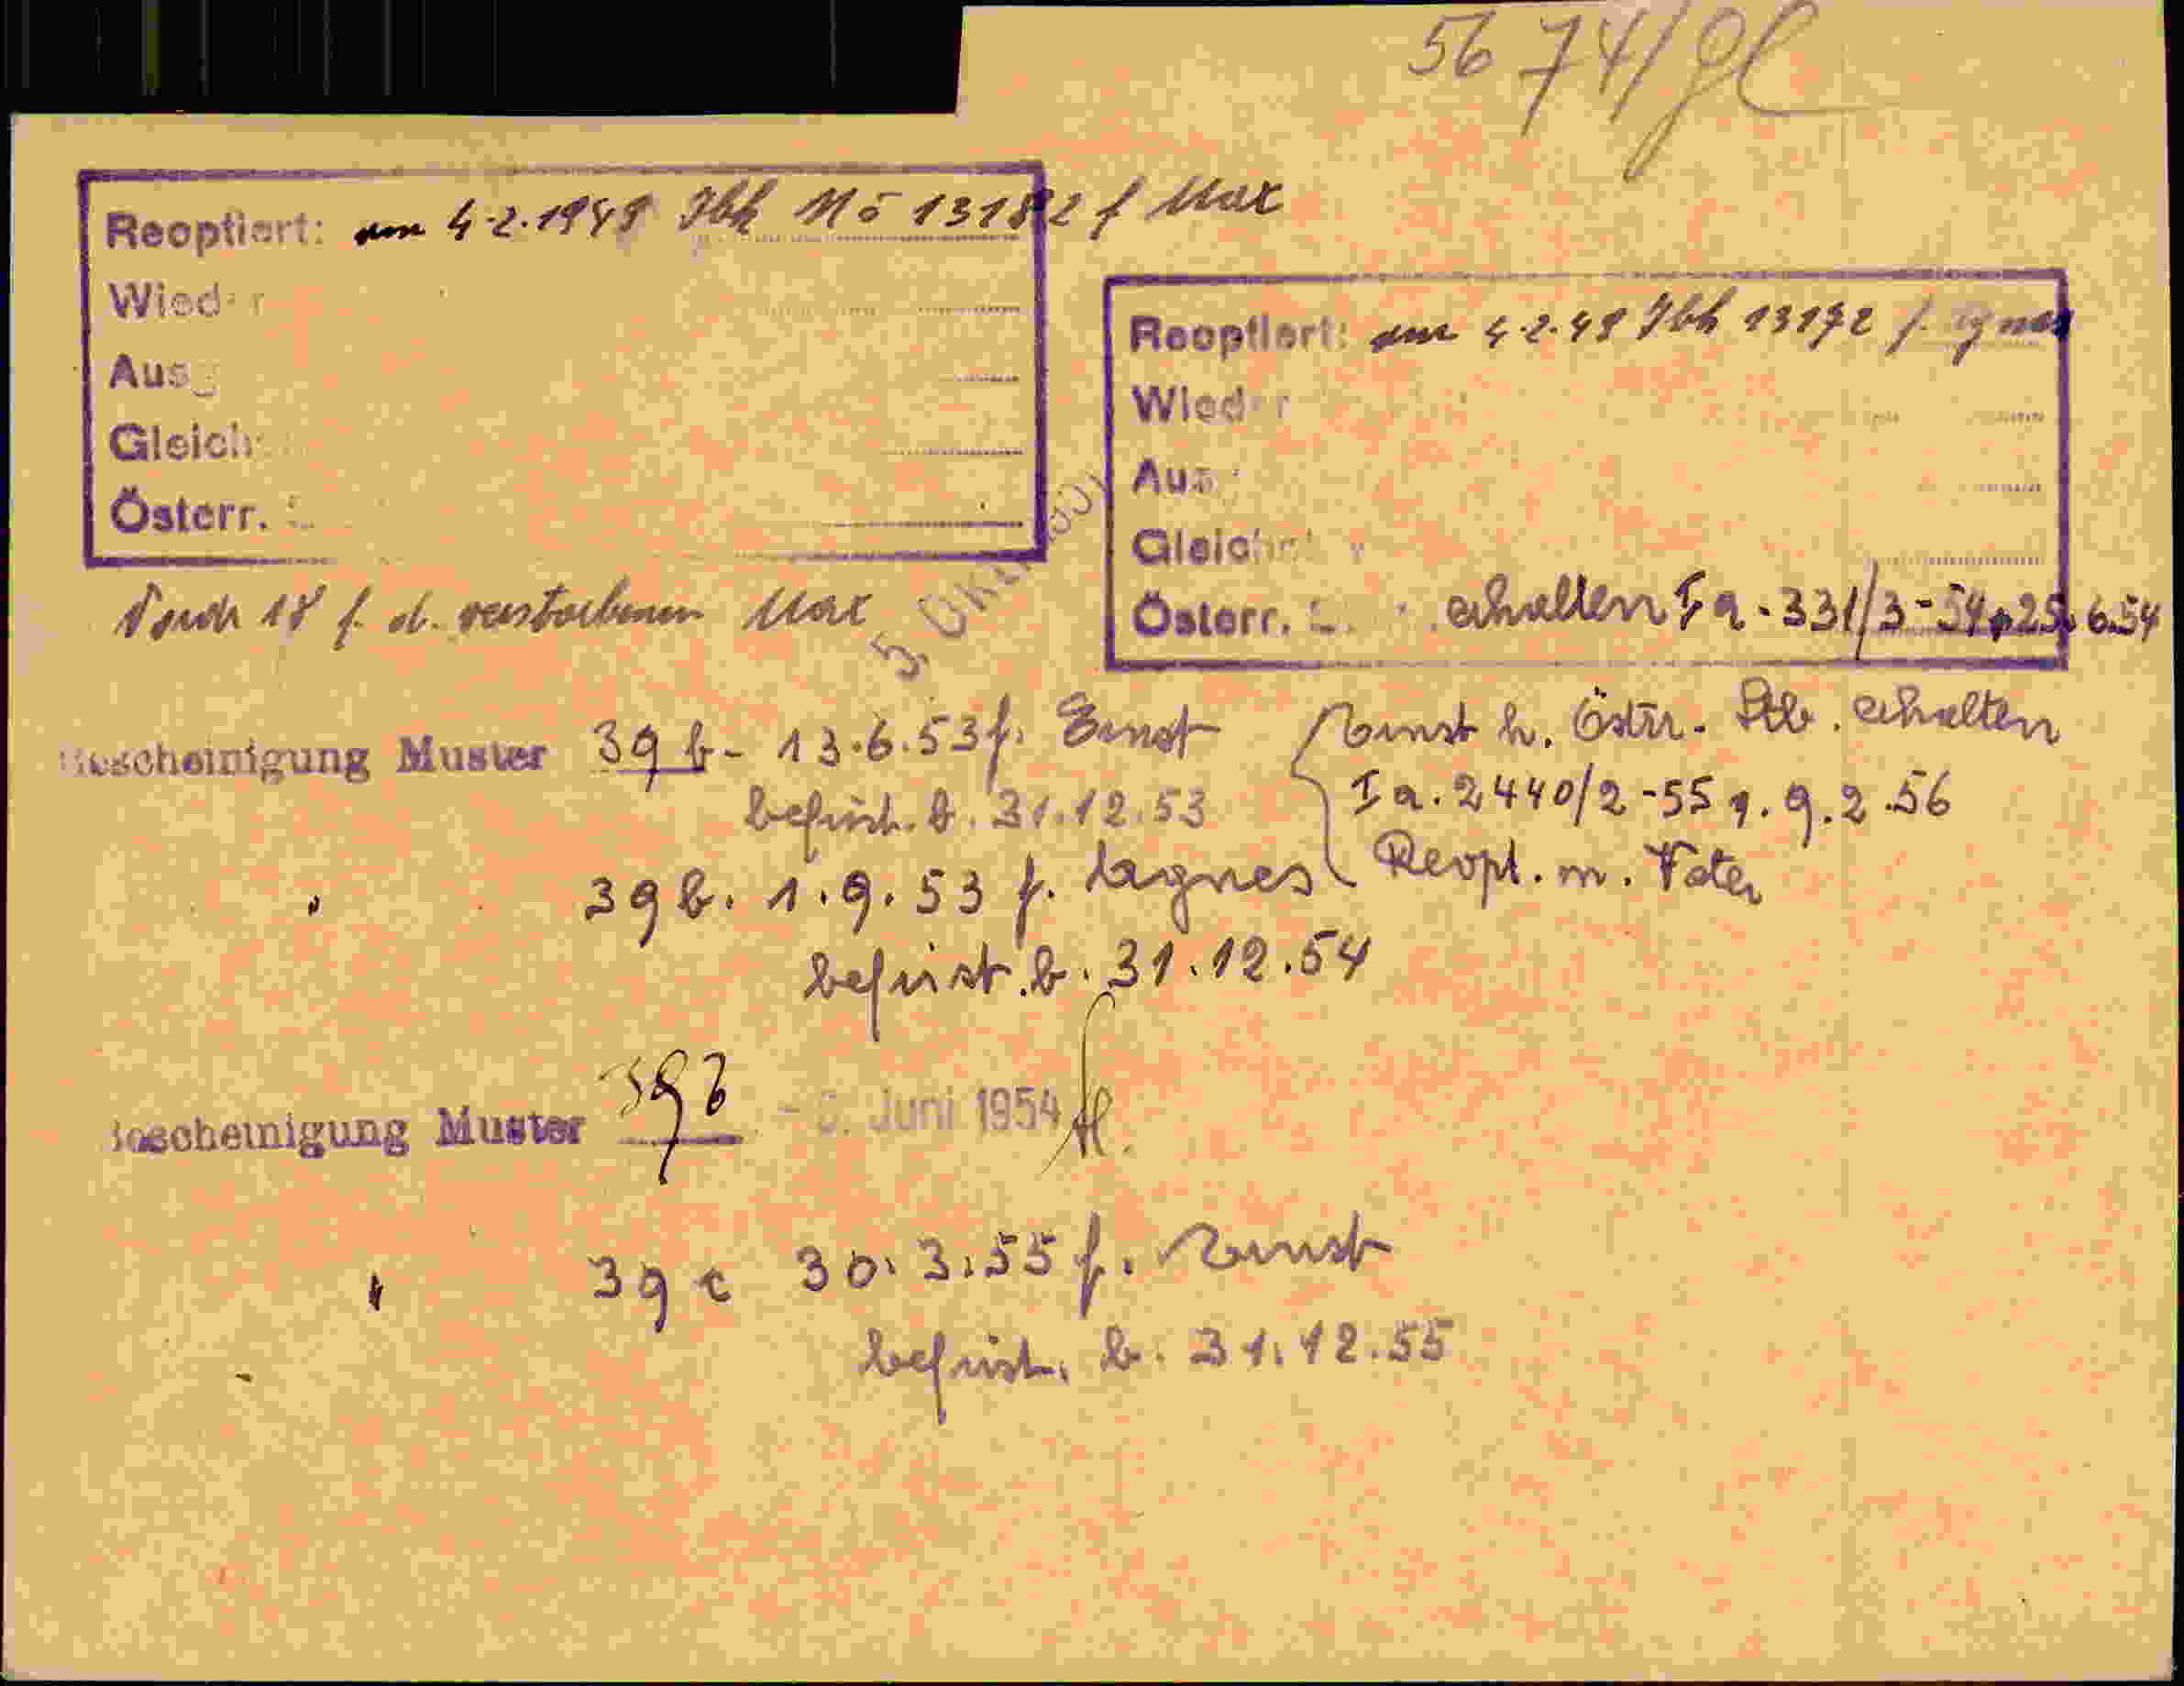 56 74/gl
Reoptiert: am 4.2.1949 Ibk Mö 13182 f Max
Wieder
Ausg
Gleich
Österr.
Reoptiert: am 4.2.49 Ibk 13172 f. Ignaz
Wieder
Aus
Gleich
Österr. erhalten Ia-331/3-54 25.6.54
18 f. d. verstorbenen Max
5. Okt.
Bescheinigung Muster 39 b- 13.6.53 f. Ernst
befrist. b. 31.12.53
Ernst h. Östr. Stb. erhalten
Ia. 2440/2-55 v. 9.2.56
Reopt. m. Vater
" 39 b. 1.9.53 f. Agnes
befrist. b. 31.12.54
Bescheinigung Muster 39b Juni 1954
" 39 c 30.3.55 f. Ernst
befrist. b. 31.12.55